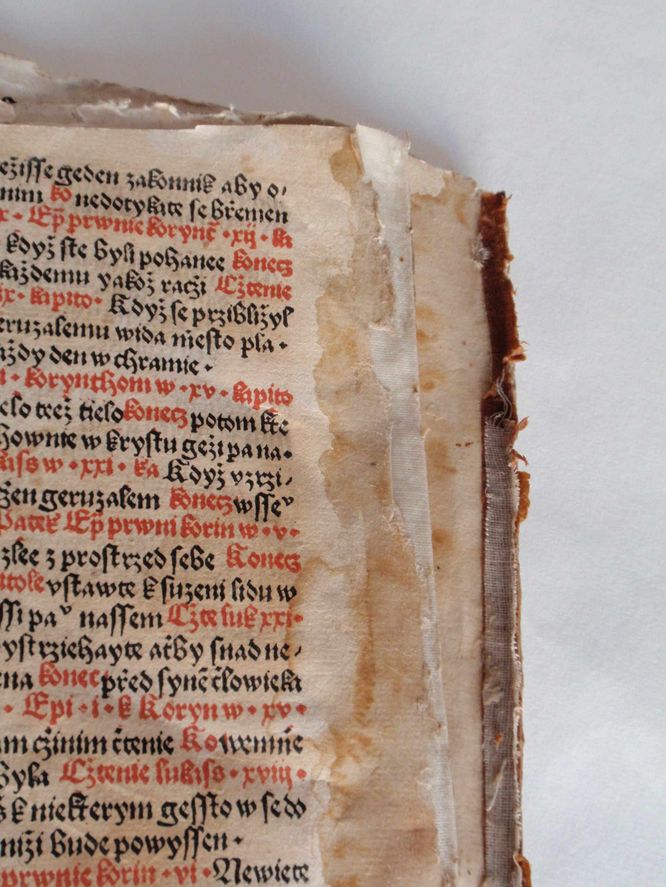 ežisse geden zakonnik aby o⸗
nim ko nedotykate se břemen
x · Ep̄ prwnie korynt̄ · xij · ka
když ste byli pohanee konecz
každemu yakož raczi Cžtenie
ix · kapito · Když se przibližyl
eruzalemu wida miesto pla ·
aždy den w chramie ·
i · korynthom w · xv · kapito
elo teež tielo konecz potom kte
hownie w krystu geži pa na ·
kass w · xxi · ka Když vzrzi⸗
žen geruzalem konecz wsseͮ
Patek Ep̄ prwni korin w · v ·
zlee z prostrzed sebe Konecz
itole vstawte k suzeni lidu w
ssi paͮ nassem Cžte luk xxi ·
ystrziehayte at̄by snad ne⸗
ena konec před synē člowieka
· Epi · i · k Koryn w · xv ·
am cžinim čtenie Ko wemn̄e
byla Cžtenie lukiss · xviij ·
k niekterym gessto w se do
niži bude powyssen ·
prwnie korin · vi · Newiete